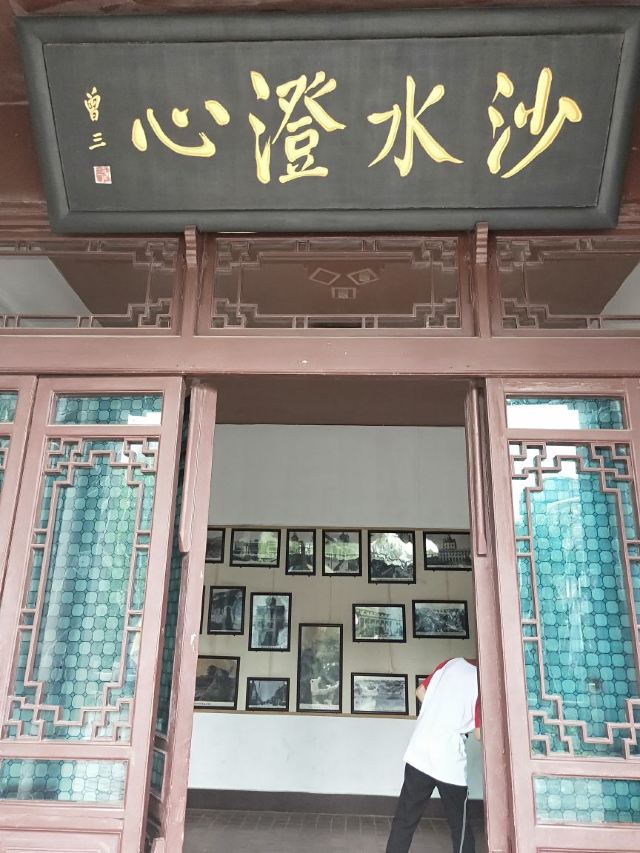 沙水澄心
曾三